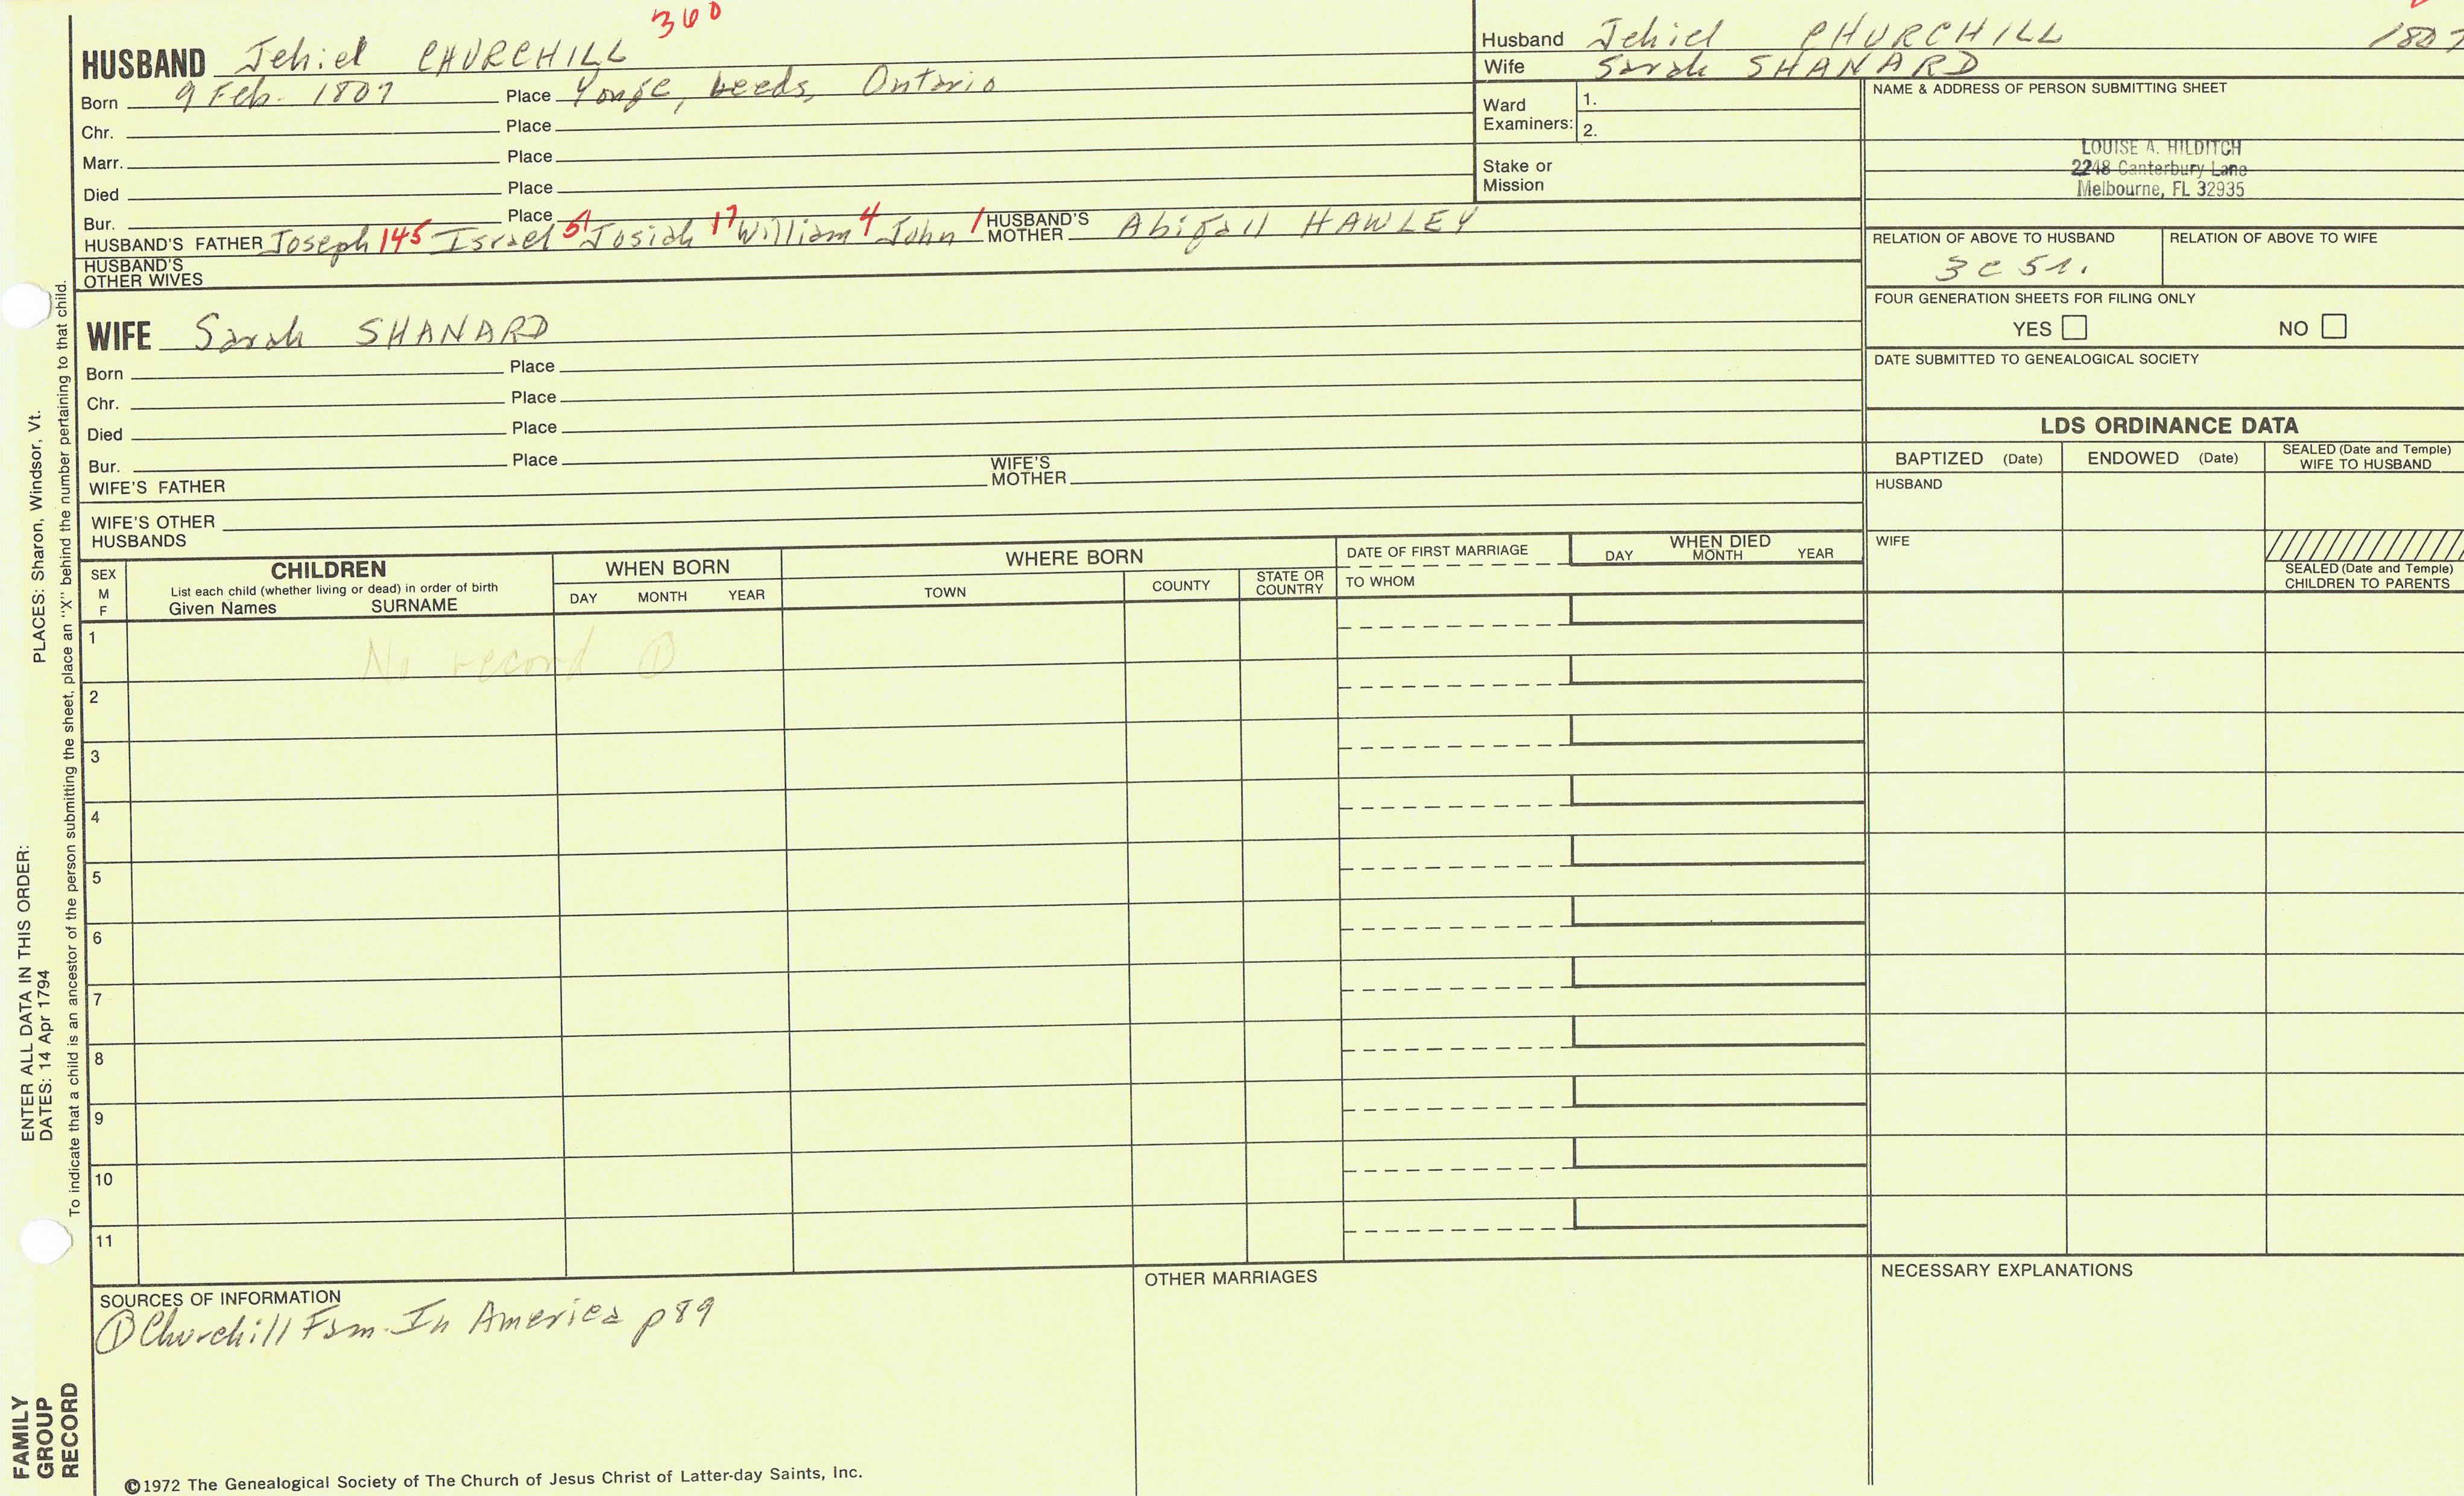 360
HUSBAND Jehiel CHURCHILL
Born 9 Feb. 1807 Place Yonge, Leeds, Ontario
Chr. Place
Marr. Place
Died Place
Bur. Place
HUSBAND'S FATHER Joseph 145 Israel 51 Josiah 17 William 4 John 1 HUSBAND'S MOTHER Abigail HAWLEY
HUSBAND'S OTHER WIVES
WIFE Sarah SHANARD
Born Place
Chr. Place
Died Place
Bur. Place
WIFE'S FATHER WIFE'S MOTHER
WIFE'S OTHER HUSBANDS
Husband Jehiel CHURCHILL 1807
Wife Sarah SHANARD
Ward Examiners: 1.
2.
Stake or Mission
NAME & ADDRESS OF PERSON SUBMITTING SHEET
LOUISE A. HILDITCH
2248 Canterbury Lane
Melbourne, FL 32935
RELATION OF ABOVE TO HUSBAND RELATION OF ABOVE TO WIFE
3c 5r.
FOUR GENERATION SHEETS FOR FILING ONLY
YES NO
DATE SUBMITTED TO GENEALOGICAL SOCIETY
LDS ORDINANCE DATA
BAPTIZED (Date) ENDOWED (Date) SEALED (Date and Temple) WIFE TO HUSBAND
HUSBAND
WIFE
SEALED (Date and Temple) CHILDREN TO PARENTS
SEX M F
CHILDREN
List each child (whether living or dead) in order of birth
Given Names SURNAME
WHEN BORN
DAY MONTH YEAR
WHERE BORN
TOWN COUNTY STATE OR COUNTRY
DATE OF FIRST MARRIAGE
TO WHOM
WHEN DIED
DAY MONTH YEAR
1 No record ①
2
3
4
5
6
7
8
9
10
11
SOURCES OF INFORMATION
① Churchill Fam. In America p89
OTHER MARRIAGES
NECESSARY EXPLANATIONS
©1972 The Genealogical Society of The Church of Jesus Christ of Latter-day Saints, Inc.
FAMILY GROUP RECORD
ENTER ALL DATA IN THIS ORDER:
DATES: 14 Apr 1794
PLACES: Sharon, Windsor, Vt.
To indicate that a child is an ancestor of the person submitting the sheet, place an "X" behind the number pertaining to that child.